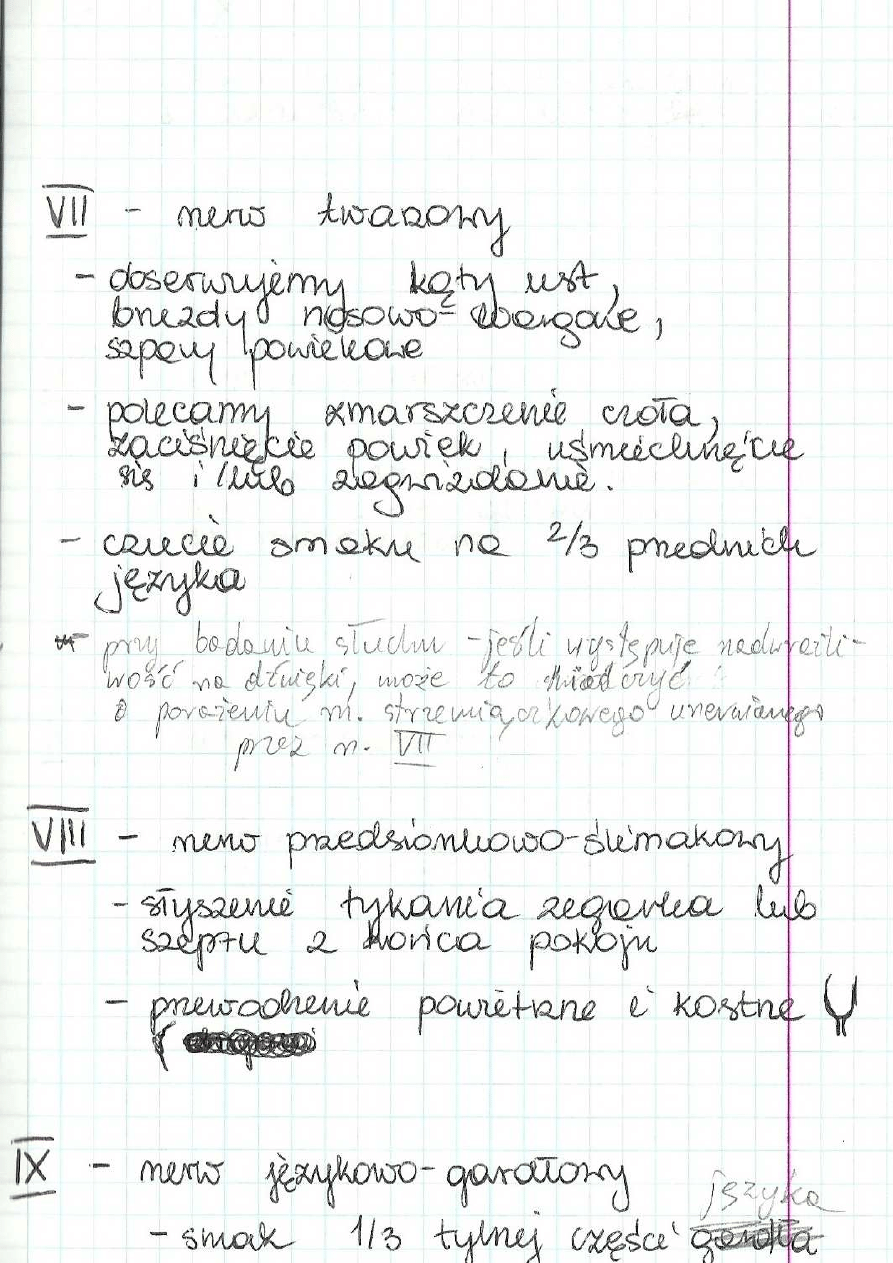 VII - nerw twarzowy
- obserwujemy kąty ust,
bruzdy nosowo-wargowe,
szpary powiekowe
- polecamy zmarszczenie czoła,
zaciśnięcie powiek, uśmiechnięcie
się i/lub zagwizdanie.
- czucie smaku na 2/3 przednich
języka
* przy badaniu słuchu - jeśli występuje nadwrażli-
wość na dźwięki, może to świadczyć
o porażeniu m. strzemiączkowego unerwianego
przez n. VII
VIII - nerw przedsionkowo-ślimakowy
- słyszenie tykania zegarka lub
szeptu z końca pokoju
- przewodzenie powietrzne i kostne
(
IX - nerw językowo-gardłowy
języka
- smak 1/3 tylnej części gardła